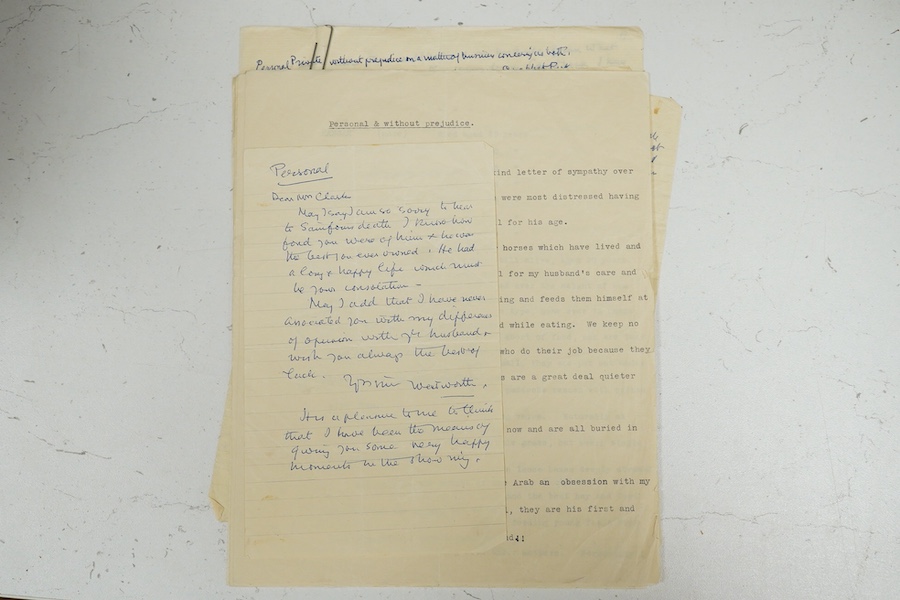 Personal Private without prejudice on a matter of business concerning us both.
Personal & without prejudice.
Personal
Dear Mrs Clark
May I say I am so sorry to hear
to Samfouns death I know how
fond you were of him & he was
the best you ever owned. He had
a long & happy life which must
be your consolation -
May I add that I have never
associated you with my difference
of opinion with yr husband &
wish you always the best of
luck.
Wentworth.
It is a pleasure to me to think
that I have been the means of
giving you some very happy
moments in the show ring.
ind letter of sympathy over
were most distressed having
l for his age.
horses which have lived and
l for my husband's care and
ing and feeds them himself at
d while eating. We keep no
who do their job because they
s are a great deal quieter
now and are all buried in
Arab an obsession with my
, they are his first and